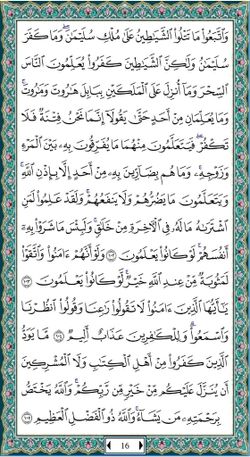 وَٱتَّبَعُوا۟ مَا تَتْلُوا۟ ٱلشَّيَـٰطِينُ عَلَىٰ مُلْكِ سُلَيْمَـٰنَ ۖ وَمَا كَفَرَ
سُلَيْمَـٰنُ وَلَـٰكِنَّ ٱلشَّيَـٰطِينَ كَفَرُوا۟ يُعَلِّمُونَ ٱلنَّاسَ
ٱلسِّحْرَ وَمَآ أُنزِلَ عَلَى ٱلْمَلَكَيْنِ بِبَابِلَ هَـٰرُوتَ وَمَـٰرُوتَ ۚ
وَمَا يُعَلِّمَانِ مِنْ أَحَدٍ حَتَّىٰ يَقُولَآ إِنَّمَا نَحْنُ فِتْنَةٌ فَلَا
تَكْفُرْ ۖ فَيَتَعَلَّمُونَ مِنْهُمَا مَا يُفَرِّقُونَ بِهِۦ بَيْنَ ٱلْمَرْءِ
وَزَوْجِهِۦ ۚ وَمَا هُم بِضَآرِّينَ بِهِۦ مِنْ أَحَدٍ إِلَّا بِإِذْنِ ٱللَّهِ ۚ
وَيَتَعَلَّمُونَ مَا يَضُرُّهُمْ وَلَا يَنفَعُهُمْ ۚ وَلَقَدْ عَلِمُوا۟ لَمَنِ
ٱشْتَرَىٰهُ مَا لَهُۥ فِى ٱلْـَٔاخِرَةِ مِنْ خَلَـٰقٍ ۚ وَلَبِئْسَ مَا شَرَوْا۟ بِهِۦٓ
أَنفُسَهُمْ ۚ لَوْ كَانُوا۟ يَعْلَمُونَ ١٠٢ وَلَوْ أَنَّهُمْ ءَامَنُوا۟ وَٱتَّقَوْا۟
لَمَثُوبَةٌ مِّنْ عِندِ ٱللَّهِ خَيْرٌ ۖ لَّوْ كَانُوا۟ يَعْلَمُونَ ١٠٣
يَـٰٓأَيُّهَا ٱلَّذِينَ ءَامَنُوا۟ لَا تَقُولُوا۟ رَٰعِنَا وَقُولُوا۟ ٱنظُرْنَا
وَٱسْمَعُوا۟ ۗ وَلِلْكَـٰفِرِينَ عَذَابٌ أَلِيمٌ ١٠٤ مَّا يَوَدُّ
ٱلَّذِينَ كَفَرُوا۟ مِنْ أَهْلِ ٱلْكِتَـٰبِ وَلَا ٱلْمُشْرِكِينَ
أَن يُنَزَّلَ عَلَيْكُم مِّنْ خَيْرٍ مِّن رَّبِّكُمْ ۗ وَٱللَّهُ يَخْتَصُّ
بِرَحْمَتِهِۦ مَن يَشَآءُ ۚ وَٱللَّهُ ذُو ٱلْفَضْلِ ٱلْعَظِيمِ ١٠٥
16